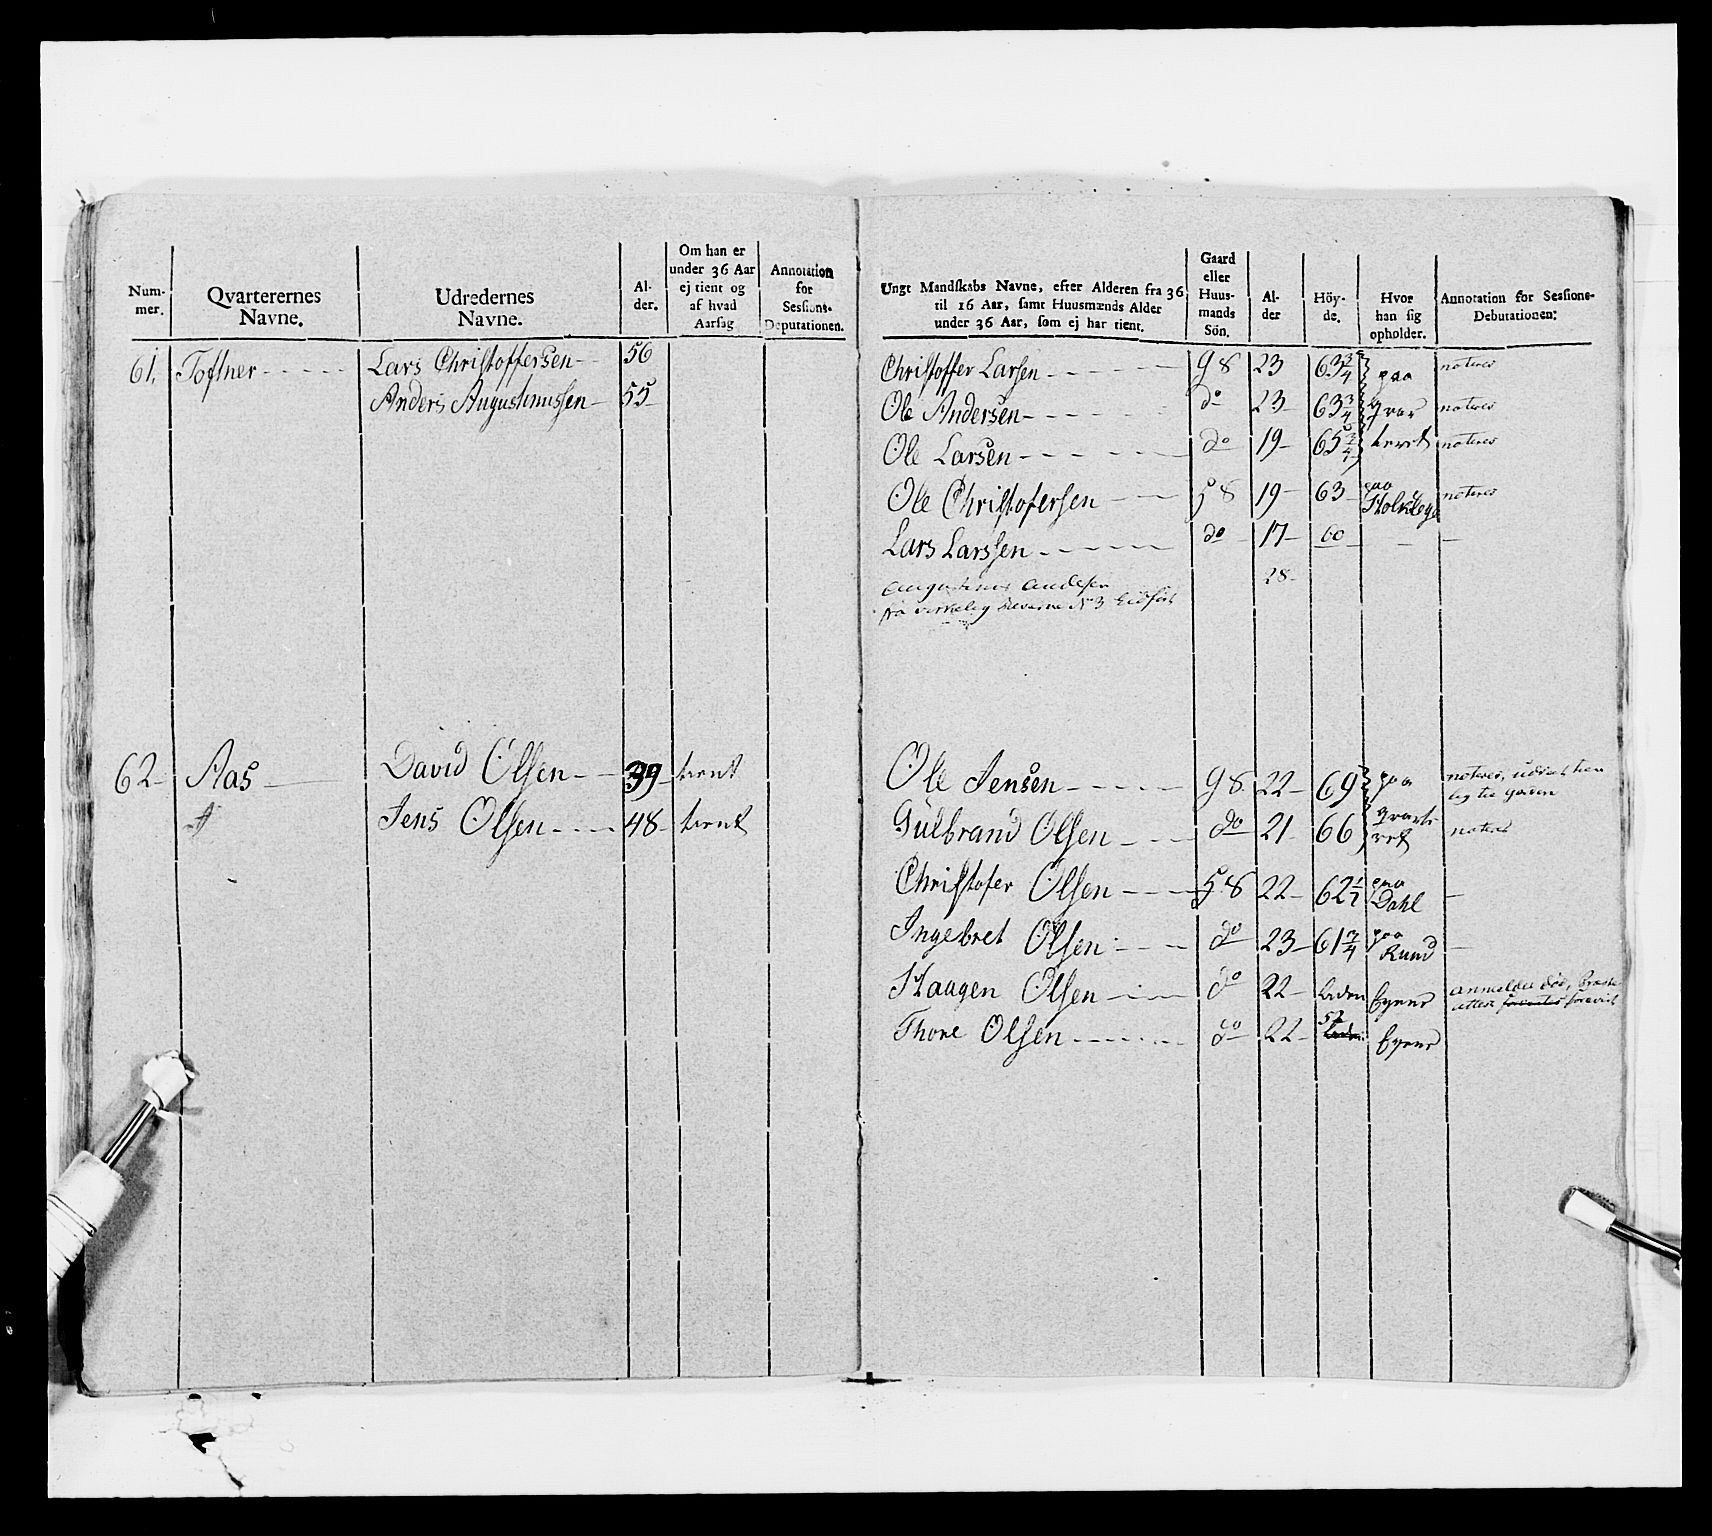 Num-
mer.
Qvarterernes
Navne.
Udredernes
Navne.
Al-
der.
Om han er
under 36 Aar
ej tient og
af hvad
Aarsag
Annotation
for
Sessions-
Deputationen.
61. Toftner Lars Christoffersen 56
Anders Augustinussen 55
62 Aas David Olsen 39 tient
Jens Olsen 48 tient
Ungt Mandskabs Navne, efter Alderen fra 36
til 16 Aar, samt Huusmænds Alder
under 36 Aar, som ej har tient.
Gaard
eller
Huus-
mands
Sön.
Al-
der
Höy-
de.
Hvor
han sig
opholder.
Annotation for Sessions-
Debutationen:
Christoffer Larsen g S 23 63 3/4 paa noteres
Ole Andersen do 23 63 3/4 qvar noteres
Ole Larsen do 19 65 3/4 teret noteres
Ole Christofersen h S 19 63 paa noteres
Lars Larssen do 17 00
Augustinus Andesen 28
fra No 3
Ole Jensen g S 22 69 paa noteres,
Gulbrand Olsen do 21 66 qvarte ret noteres
Christofer Olsen h S 22 62 paa Dahl
Ingebret Olsen do 23 61 3/4 paa Ruud
Haagen Olsen do 22 liden anmeldes död,
Thore Olsen do 22 57